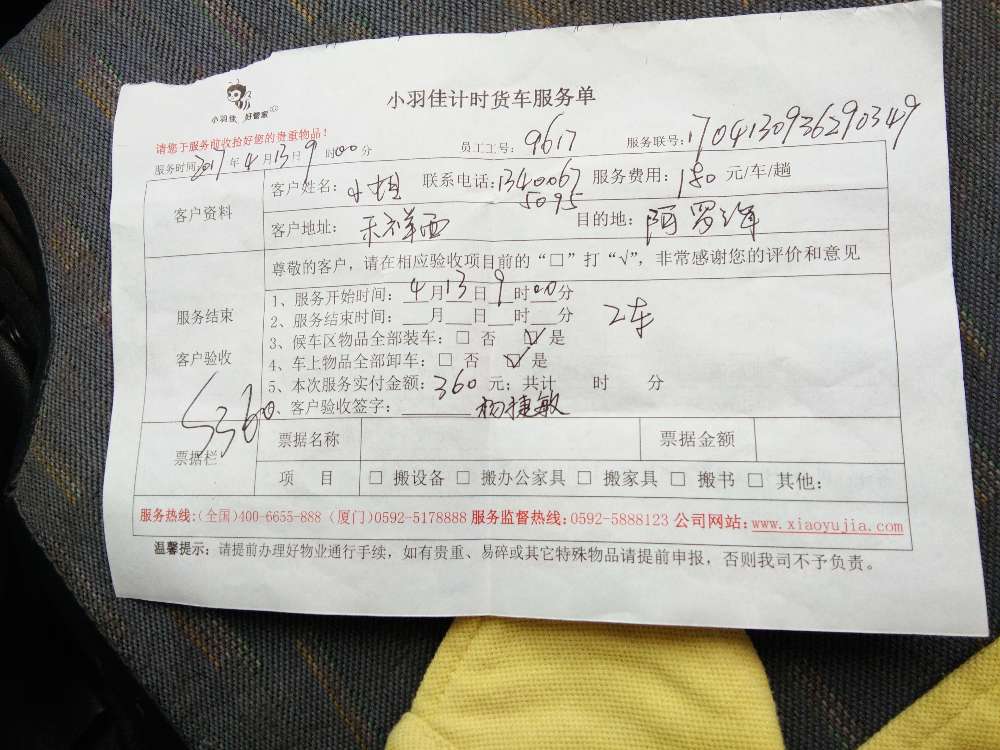 小羽佳 好管家
小羽佳计时货车服务单
请您于服务前收拾好您的贵重物品！
服务时间：2017年4月13日9时00分 员工工号：9617 服务联号：1704130936290349
客户资料
客户姓名：小姐 联系电话：13400675095 服务费用：180元/车/趟
客户地址：禾祥西 目的地：阿罗海
服务结束
客户验收
尊敬的客户，请在相应验收项目前的“□”打“√”，非常感谢您的评价和意见
1、服务开始时间：4月13日9时00分
2、服务结束时间：___月___日___时___分
2车
3、候车区物品全部装车：□ 否 ☑ 是
4、车上物品全部卸车：□ 否 ☑ 是
5、本次服务实付金额：360元；共计 时 分
、客户验收签字：杨捷敏
票据栏
票据名称 票据金额
项 目 □ 搬设备 □ 搬办公家具 □ 搬家具 □ 搬书 □ 其他：
服务热线：(全国)400-6655-888 (厦门)0592-5178888 服务监督热线：0592-5888123 公司网站：www.xiaoyujia.com
温馨提示：请提前办理好物业通行手续，如有贵重、易碎或其它特殊物品请提前申报，否则我司不予负责。